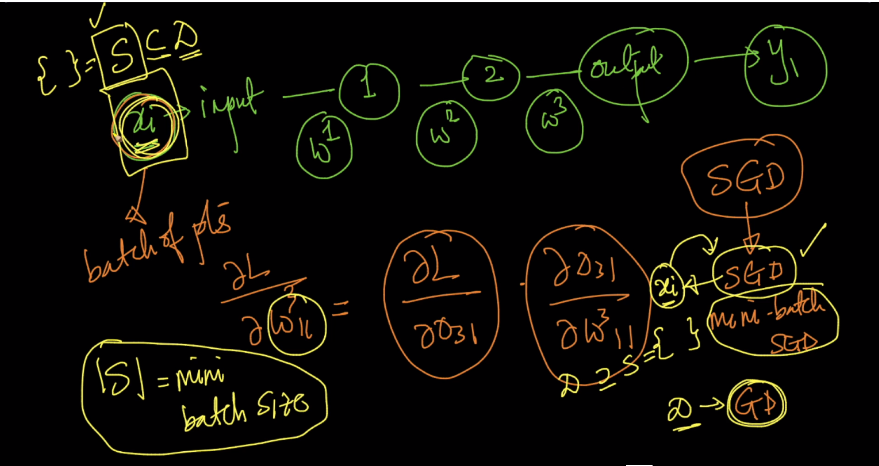 { } = S ⊆ D
xi → input — 1 — 2 — output → y1
w^1 w^2 w^3
SGD
batch of pts
∂L/∂w^3_11 = ∂L/∂O31 · ∂O31/∂w^3_11
xi ← SGD
mini-batch
SGD
D ⊇ S = { }
|S| = mini
batch size
D → GD